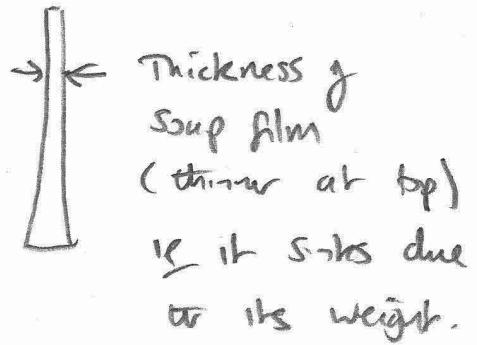 Thickness of
Soap film
(thinner at top)
ie it sinks due
to its weight.